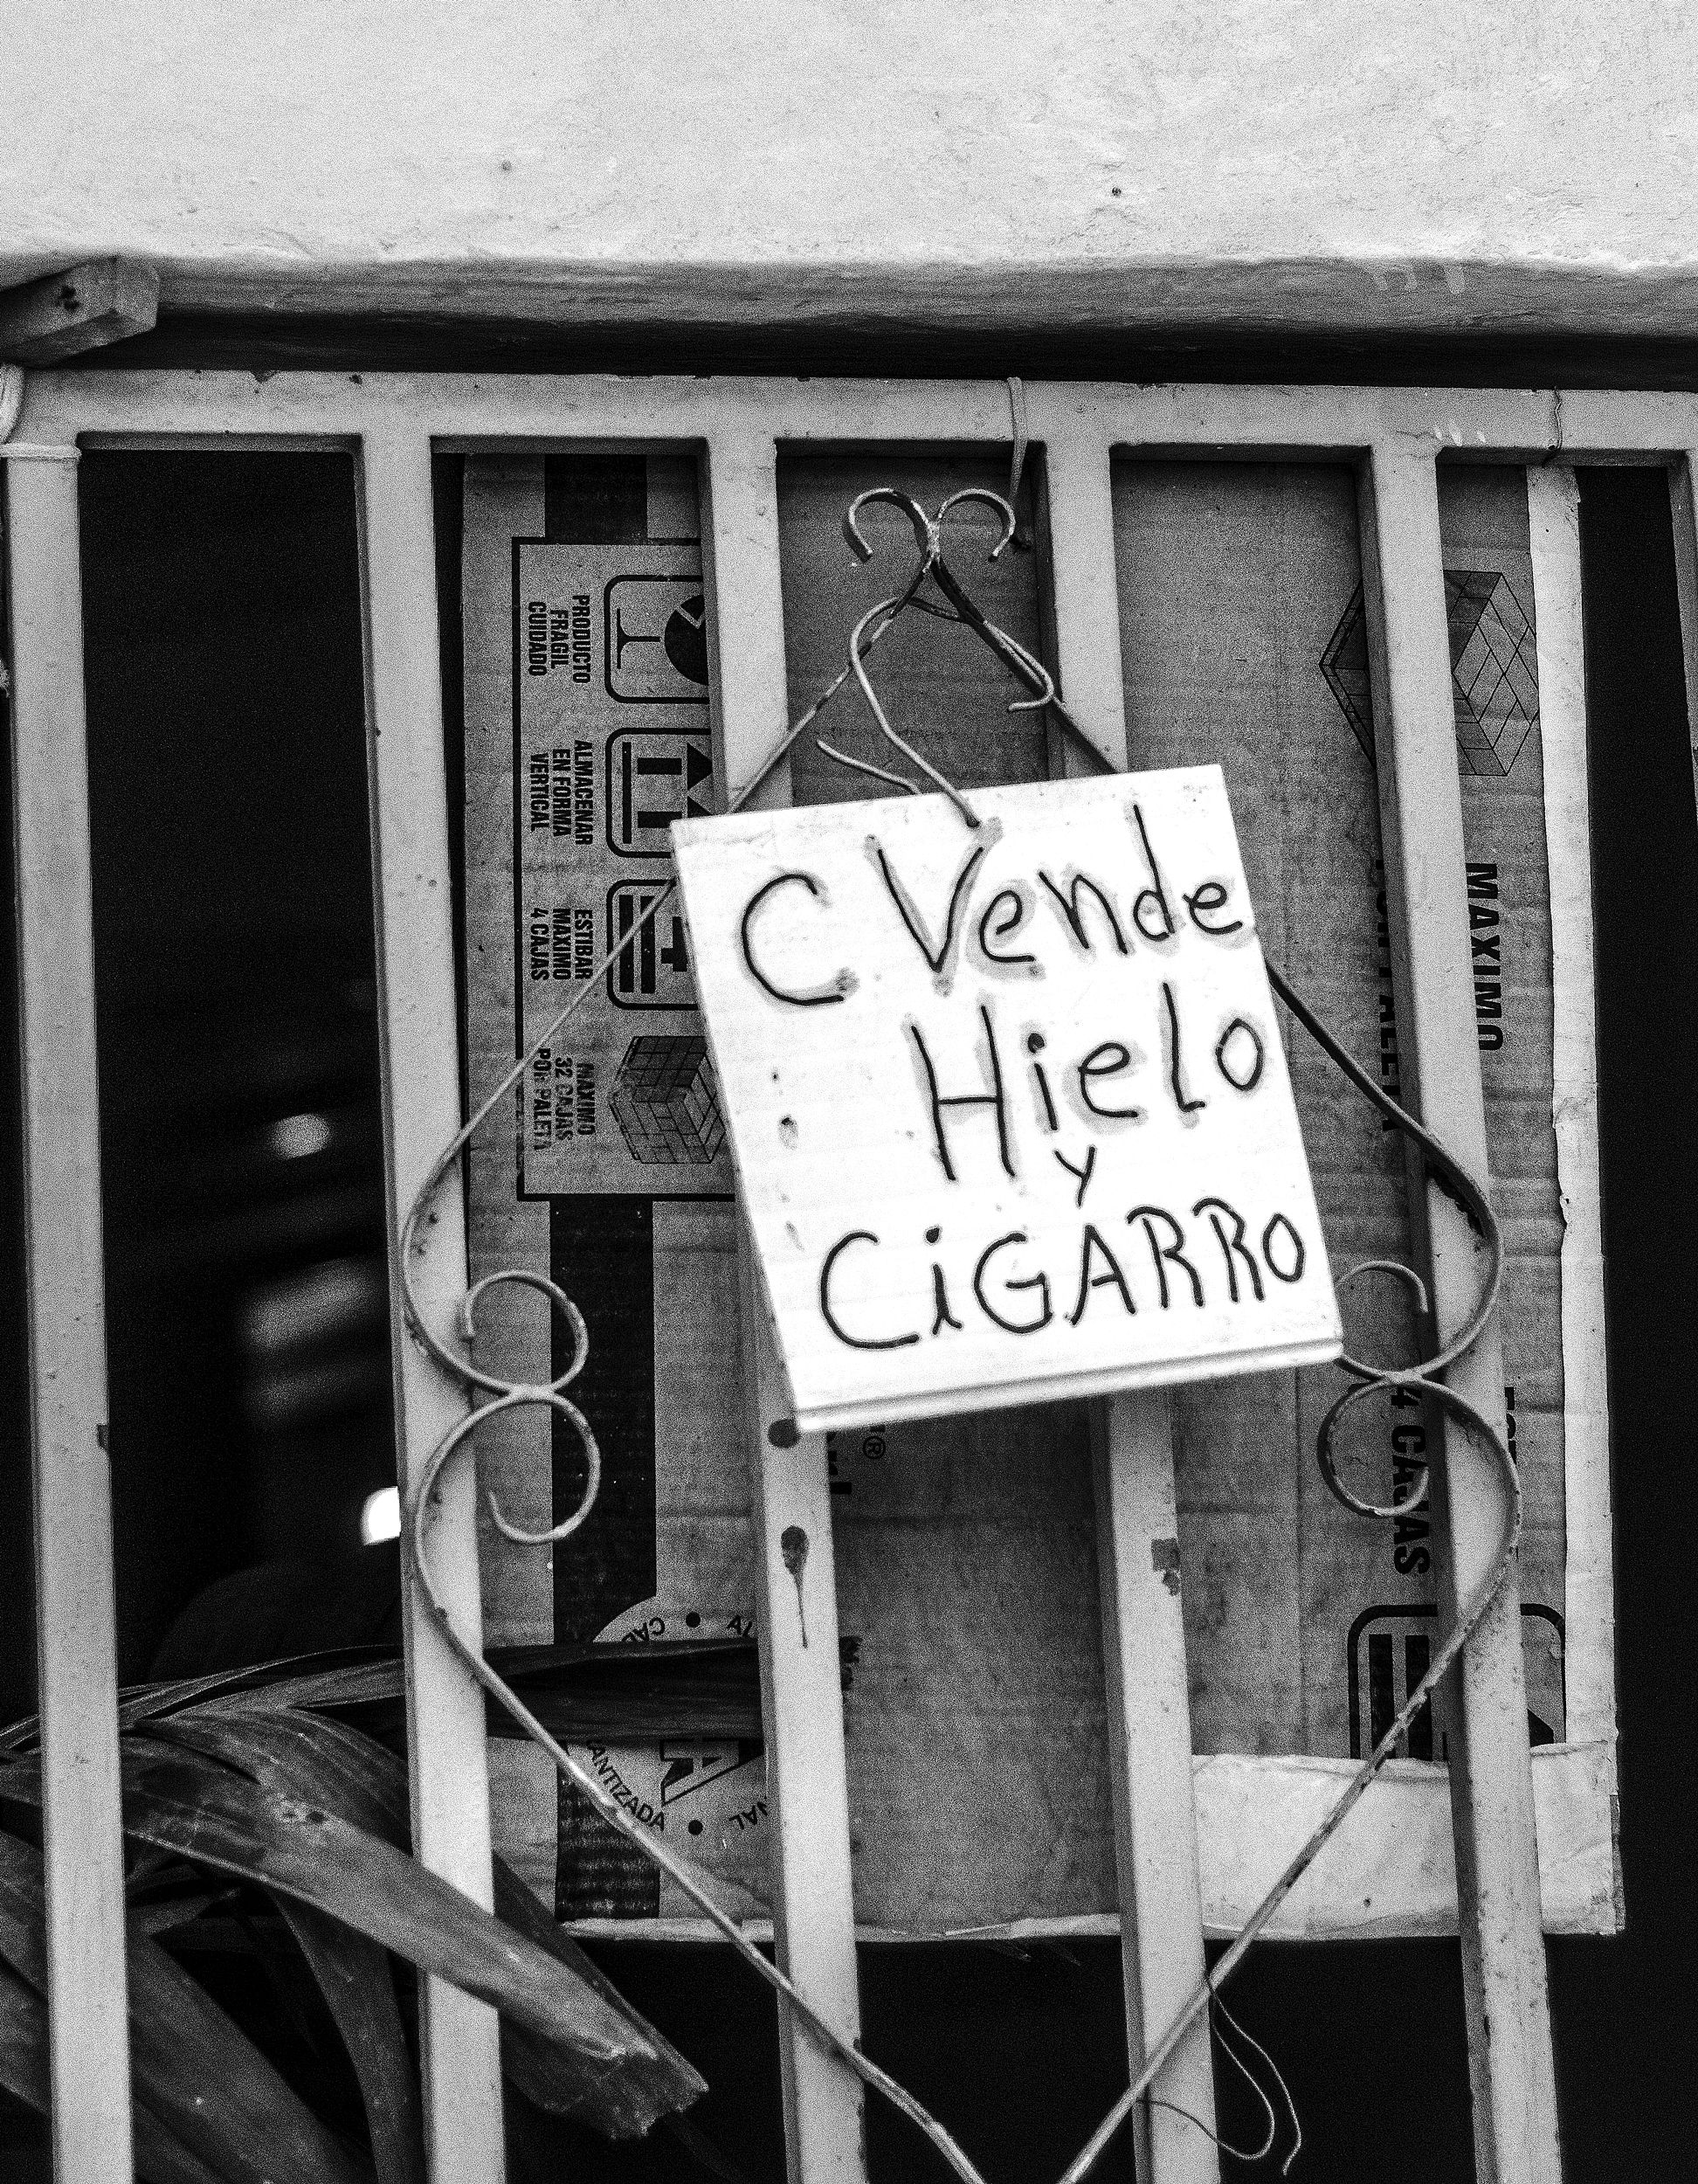 C Vende
Hielo
y
CiGARRO
PRODUCTO
FRAGIL
CUIDADO
ALMACENAR
EN FORMA
VERTICAL
ESTIBAR
MAXIMO
4 CAJAS
MAXIMO
32 CAJAS
POR PALET
MAXIMO
4 CAJAS
®